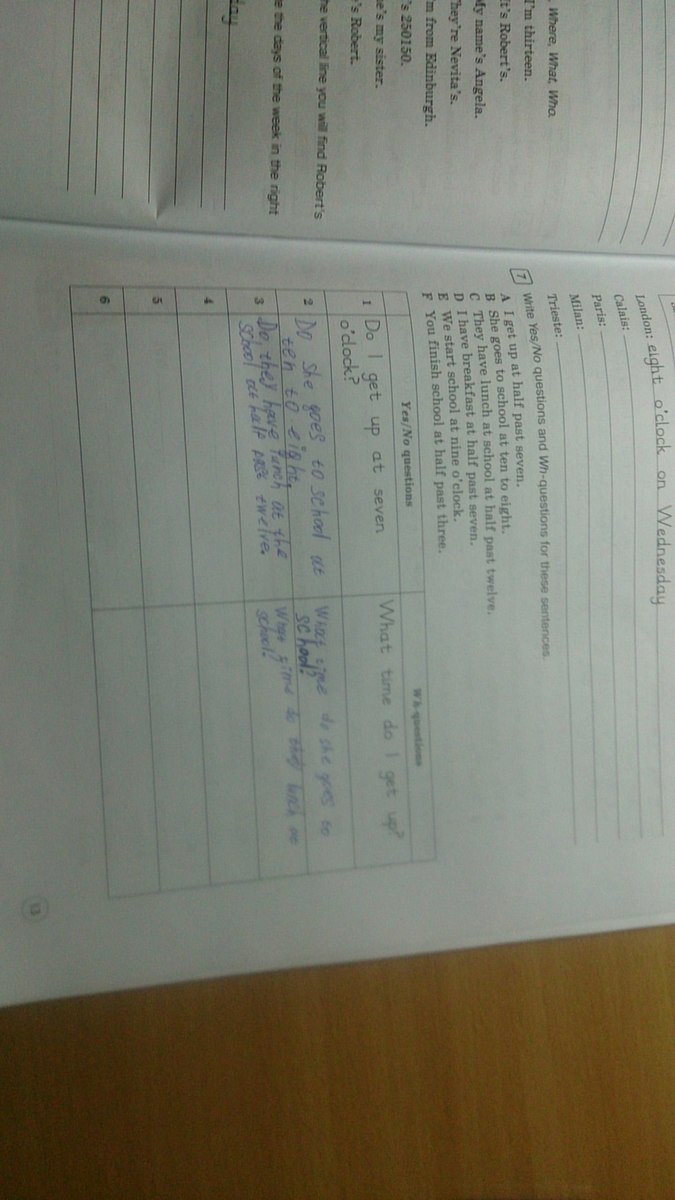 . Where, What, Who.
I'm thirteen.
It's Robert's.
My name's Angela.
They're Nevita's.
I'm from Edinburgh.
's 250150.
he's my sister.
's Robert.
he vertical line you will find Robert's
e the days of the week in the right
day
London: eight o'clock on Wednesday
Calais:
Paris:
Milan:
Trieste:
7 Write Yes/No questions and Wh-questions for these sentences.
A I get up at half past seven.
B She goes to school at ten to eight.
C They have lunch at school at half past twelve.
D I have breakfast at half past seven.
E We start school at nine o'clock.
F You finish school at half past three.
Yes/No questions Wh-questions
1 Do I get up at seven What time do I get up?
o'clock?
2 Do she goes to school at What time do she goes to
ten to eight. school?
3 Do they have lunch at the What time do they lunch
school at half past twelve. school?
4
5
6
13